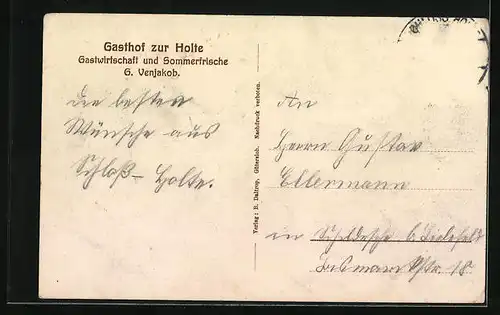 Gasthof zur Holte
Gastwirtschaft und Sommerfrische
G. Venjakob.
die besten
Wünsche aus
Schloß-Holte.
Verlag: R. Daltrop, Gütersloh. Nachdruck verboten.
An
Herrn Gustav
Ellermann
in Schildesche b/Bielefeld
Bismarckstr. 18.